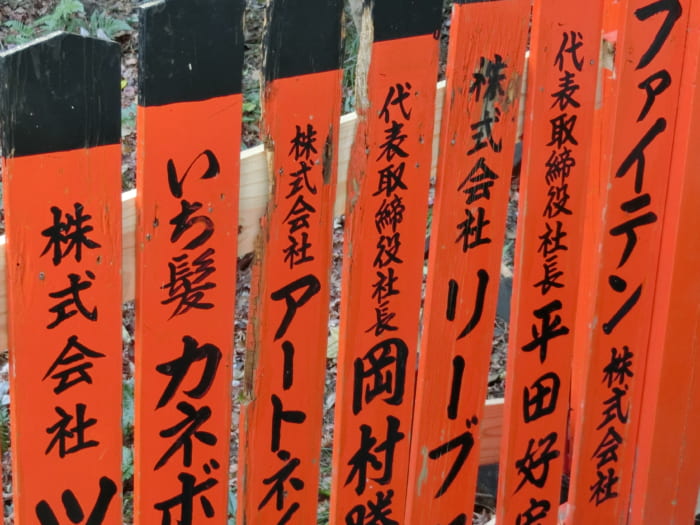 株式会社ツ
いち髪 カネボ
株式会社 アートネイ
代表取締役社長 岡村勝
株式会社 リーブ
代表取締役社長 平田好
ファイテン 株式会社